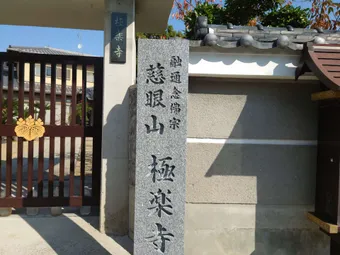 極楽寺
融通念佛宗
慈眼山 極楽寺